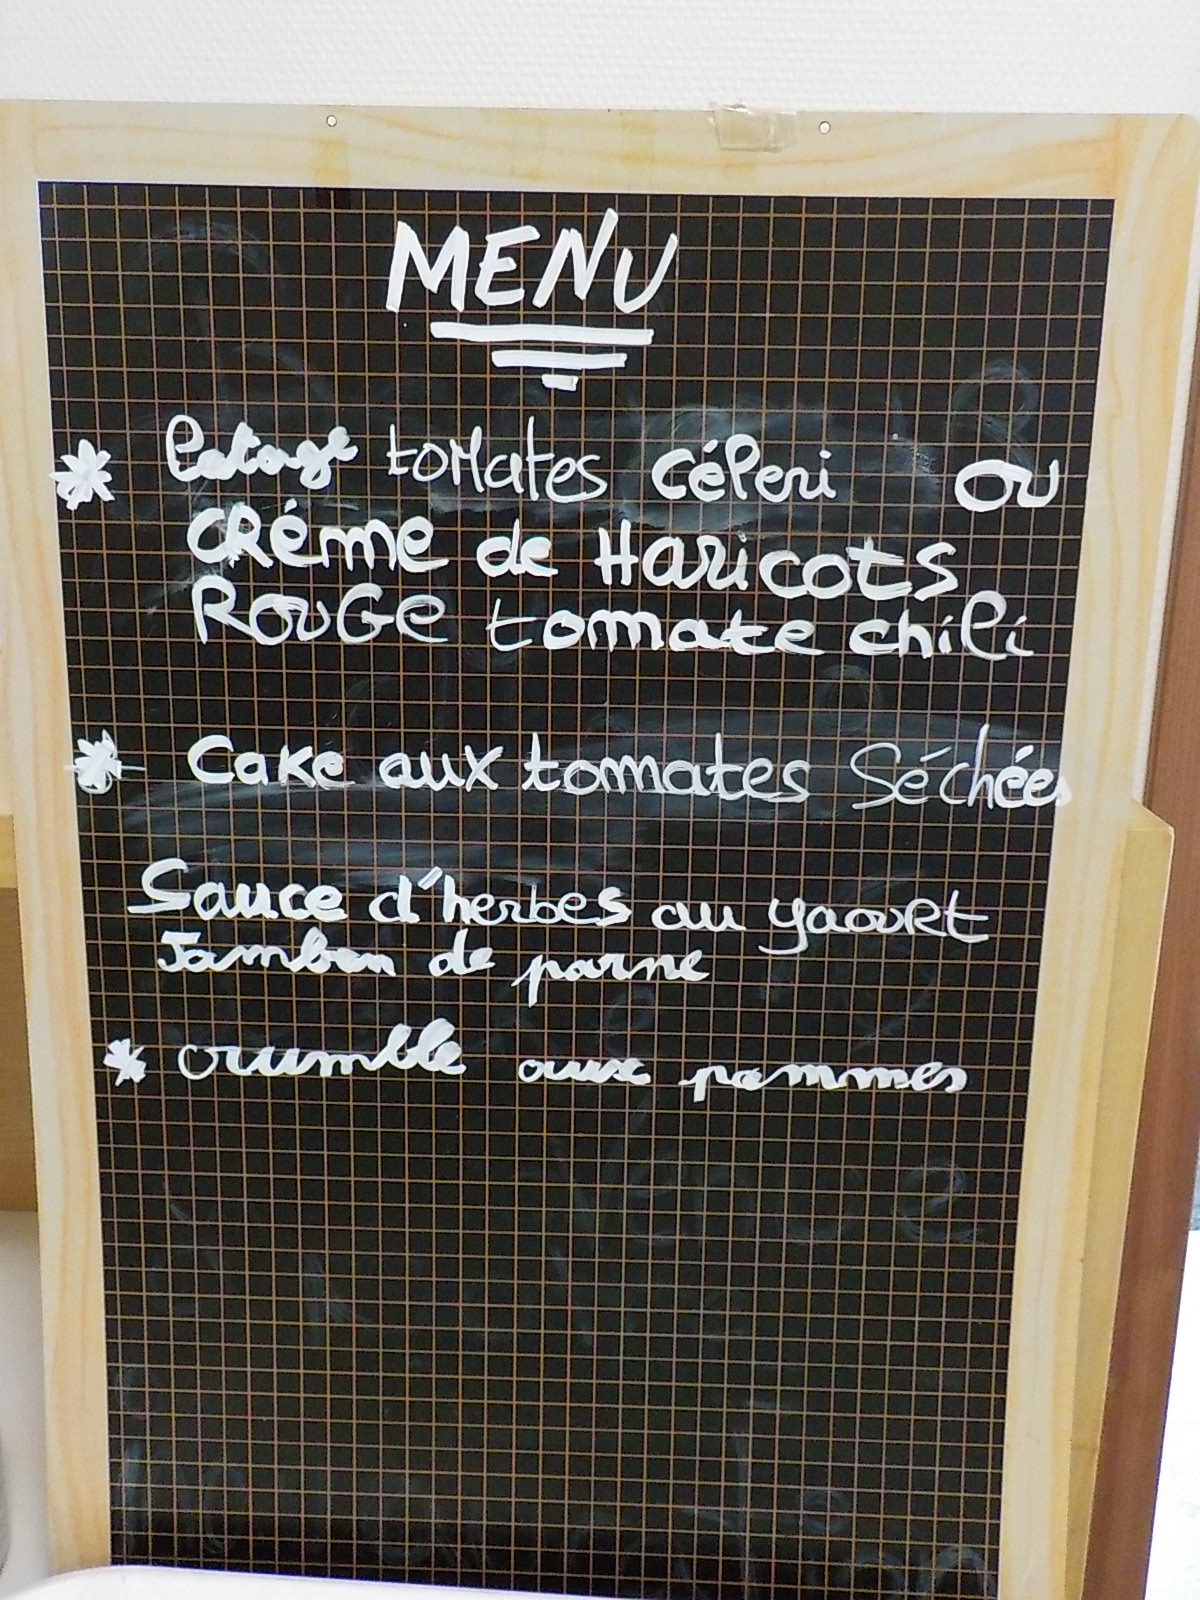 MENU
* Potage tomates céleri ou
CRéme de Haricots
ROUGE tomate chili
* Cake aux tomates Séchées
Sauce d'herbes au yaouRt
Jambon de parme
* crumble aux pommes